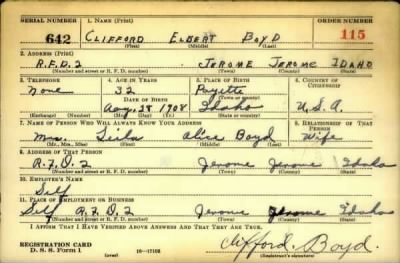 SERIAL NUMBER 1. NAME (Print) ORDER NUMBER
642 CLIFFORD ELBERT BOYD 115
(First) (Middle) (Last)
2. ADDRESS (Print)
R.F.D. 2 JEROME JEROME IDAHO
(Number and street or R. F. D. number) (Town) (County) (State)
3. TELEPHONE 4. AGE IN YEARS 5. PLACE OF BIRTH 6. COUNTRY OF CITIZENSHIP
None 32 Payette
DATE OF BIRTH (Town or county)
Aug. 28 1908 Idaho U.S.A.
(Exchange) (Number) (Mo.) (Day) (Yr.) (State or country)
7. NAME OF PERSON WHO WILL ALWAYS KNOW YOUR ADDRESS 8. RELATIONSHIP OF THAT PERSON
Mrs. Leila Alice Boyd Wife
(Mr., Mrs., Miss) (First) (Middle) (Last)
9. ADDRESS OF THAT PERSON
R.F.D. 2 Jerome Jerome Idaho
(Number and street or R. F. D. number) (Town) (County) (State)
10. EMPLOYER'S NAME
Self
11. PLACE OF EMPLOYMENT OR BUSINESS
Self R.F.D. 2 Jerome Jerome Idaho
(Number and street or R. F. D. number) (Town) (County) (State)
I AFFIRM THAT I HAVE VERIFIED ABOVE ANSWERS AND THAT THEY ARE TRUE.
REGISTRATION CARD
D. S. S. Form 1 (over) 16—17105 Clifford Boyd.
(Registrant's signature)